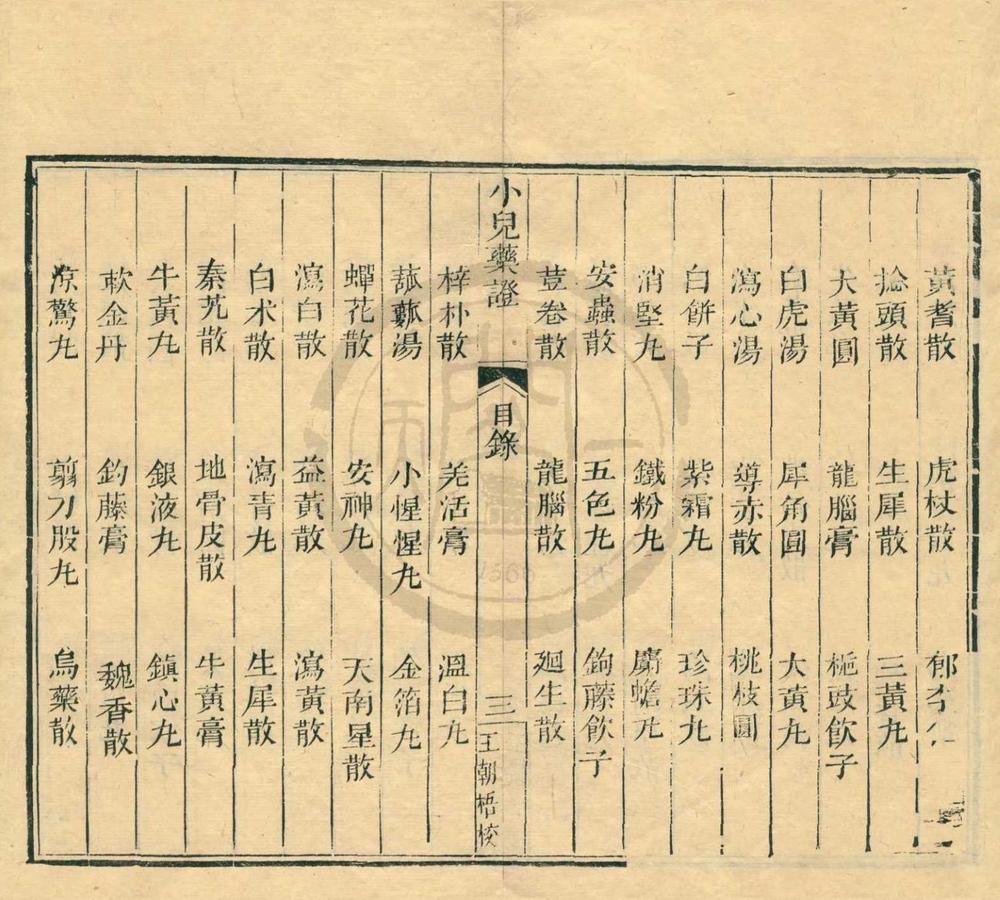 黃耆散 虎杖散 郁李仁
捻頭散 生犀散 三黃九
大黃圓 龍腦膏 梔豉飲子
白虎湯 犀角圓 大黃九
瀉心湯 導赤散 桃枝圓
白餅子 紫霜九 珍珠九
消堅九 鐵粉九 麝蟾九
安蟲散 五色九 鉤藤飲子
荳卷散 龍腦散 廻生散
小兒藥證 目錄 三 王朝梧校
梓朴散 羌活膏 溫白九
菰蓏湯 小惺惺九 金箔九
蟬花散 安神九 天南星散
瀉白散 益黃散 瀉黃散
白术散 瀉青九 生犀散
秦艽散 地骨皮散 牛黃膏
牛黃九 銀液九 鎮心九
軟金丹 鈞藤膏 魏香散
涼驚九 剪刀股九 烏藥散